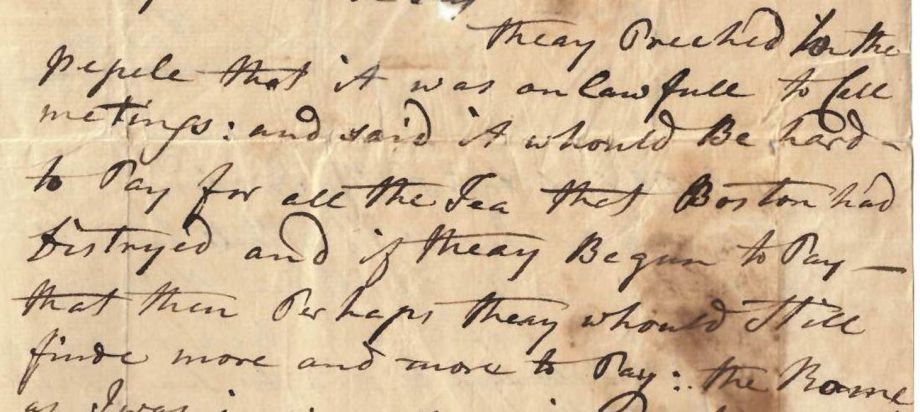 theay Preched to the
pepele that it was onlawfull to Call
metings: and said it whould Be hard-
to Pay for all the Tea that Boston had
distryed and if theay Begun to Pay—
that then Perhaps theay whould Still
finde more and more to Pay: the Rome
as I was